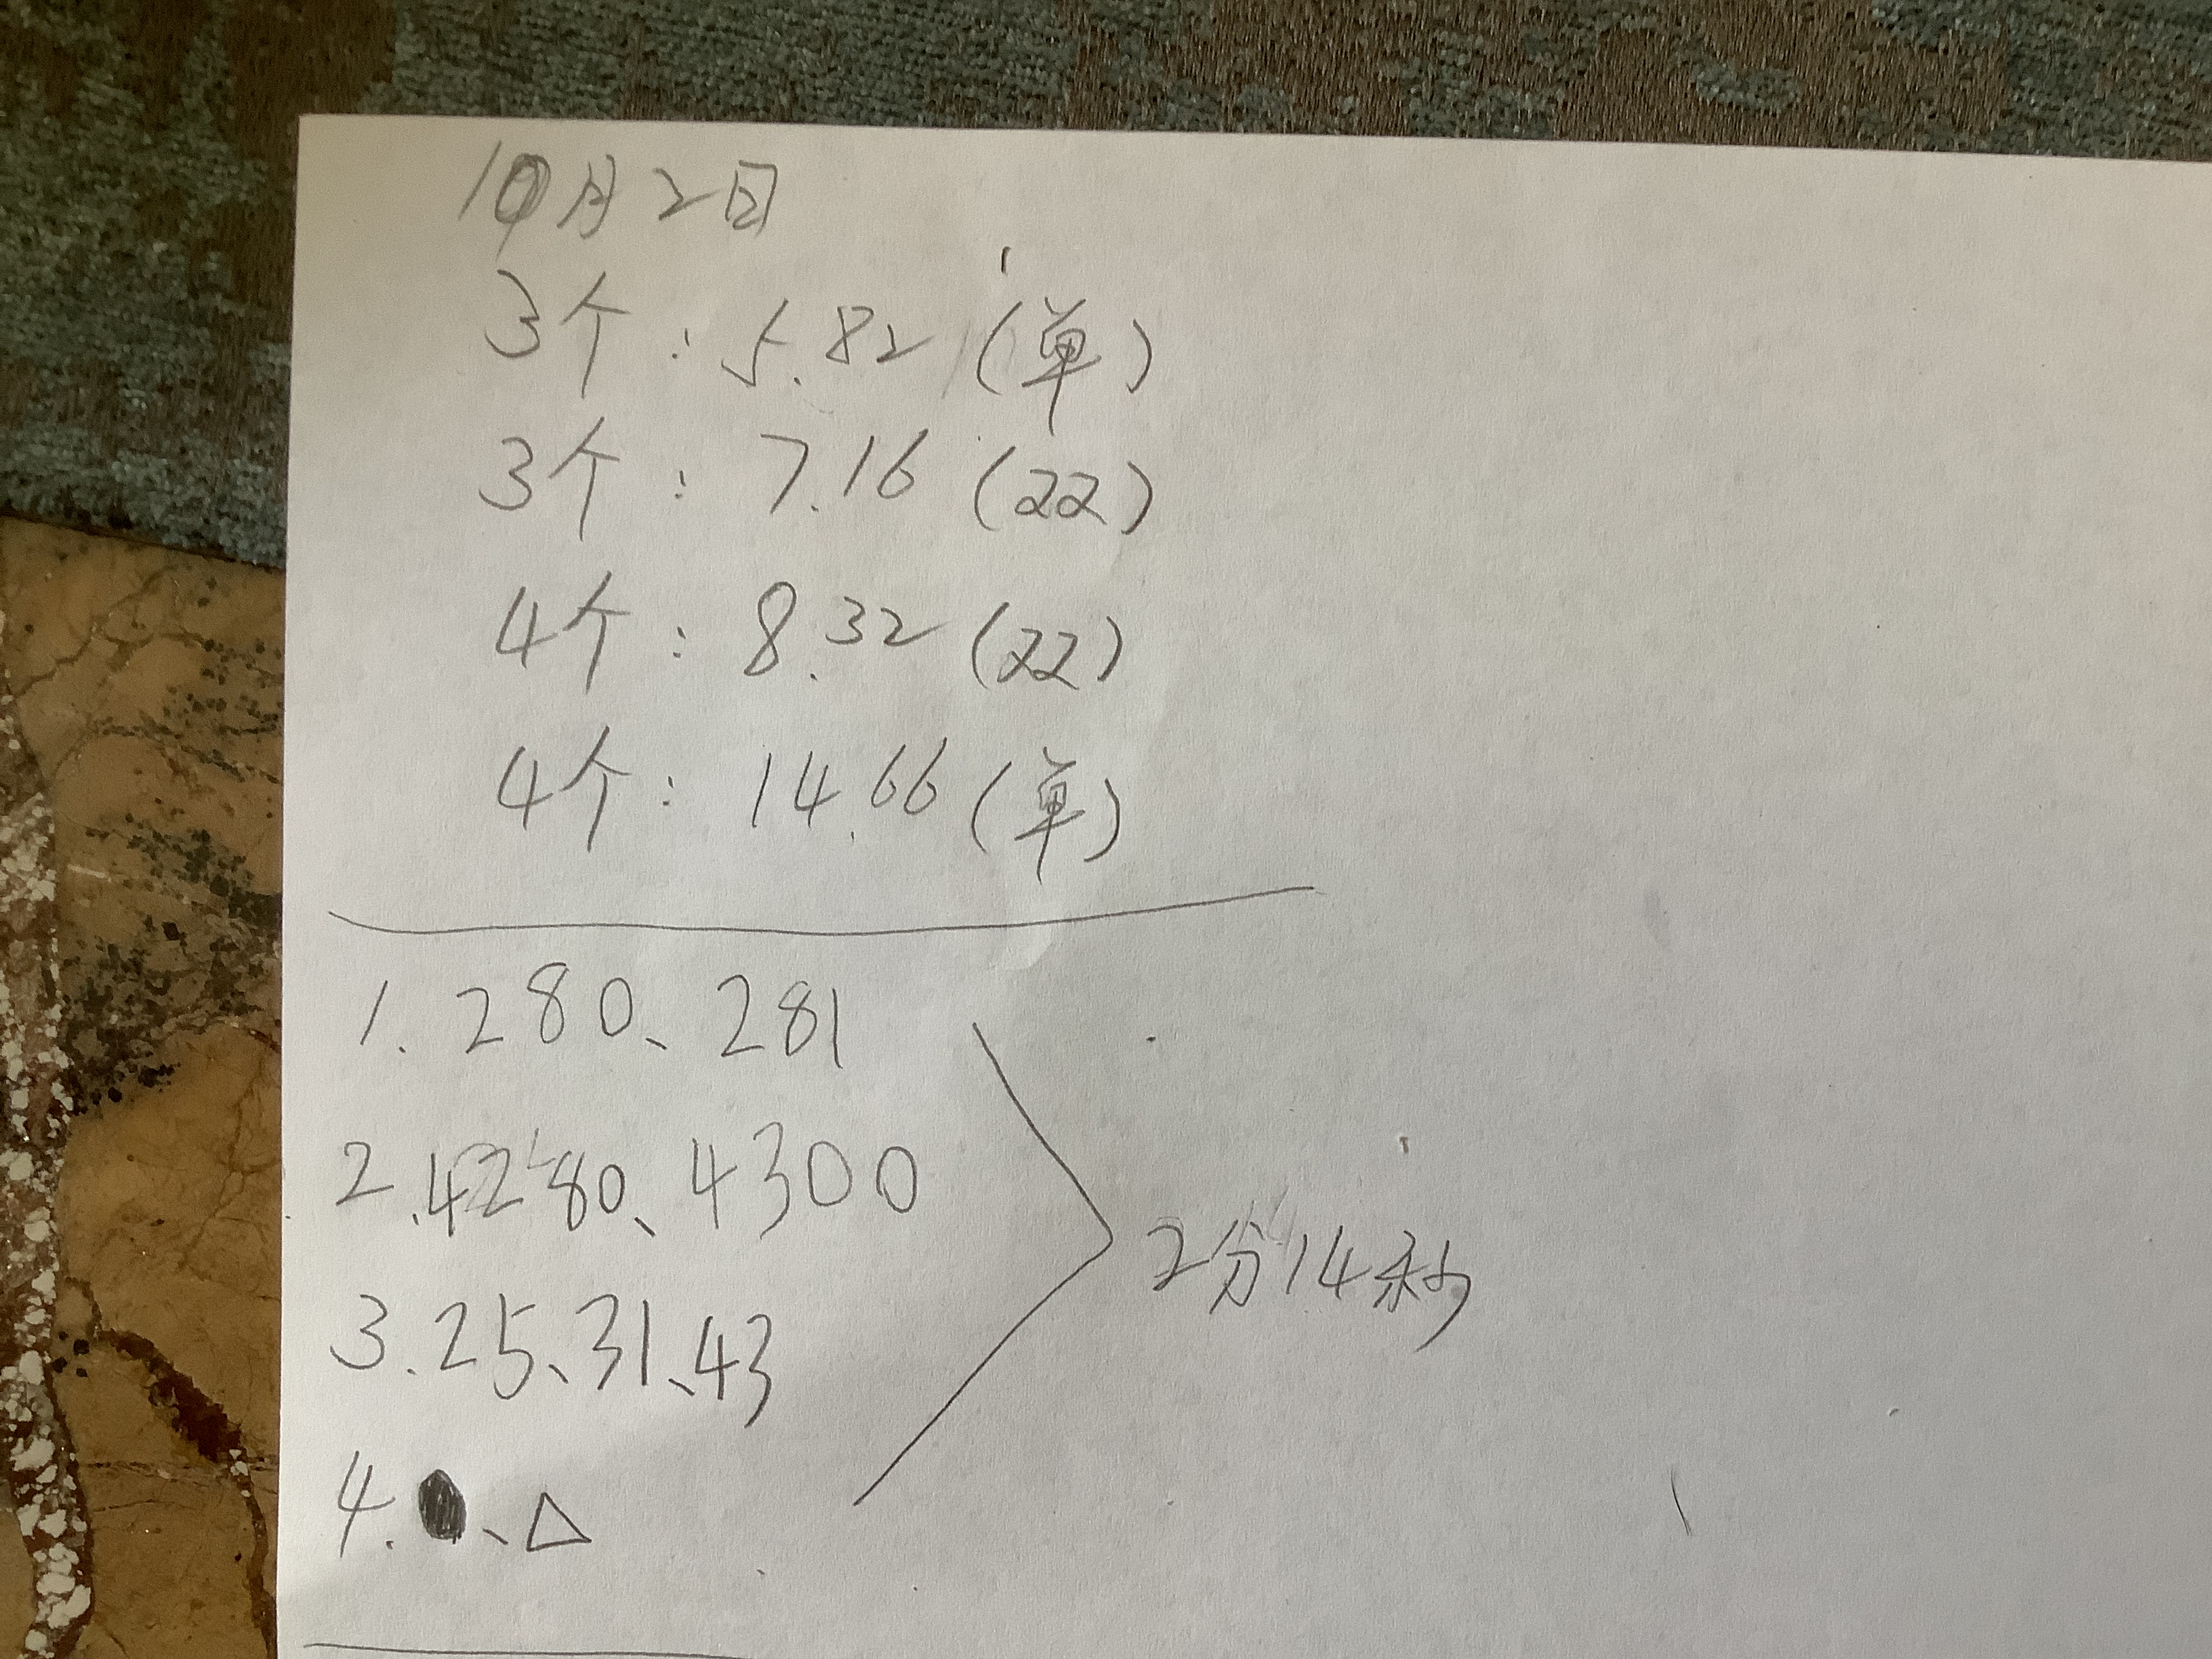 10月2日
3个：5.82（单）
3个：7.16（22）
4个：8.32（22）
4个：14.66（单）
1.280、281
2.4280、4300
2分14秒
3.25、31、43
4.●、△